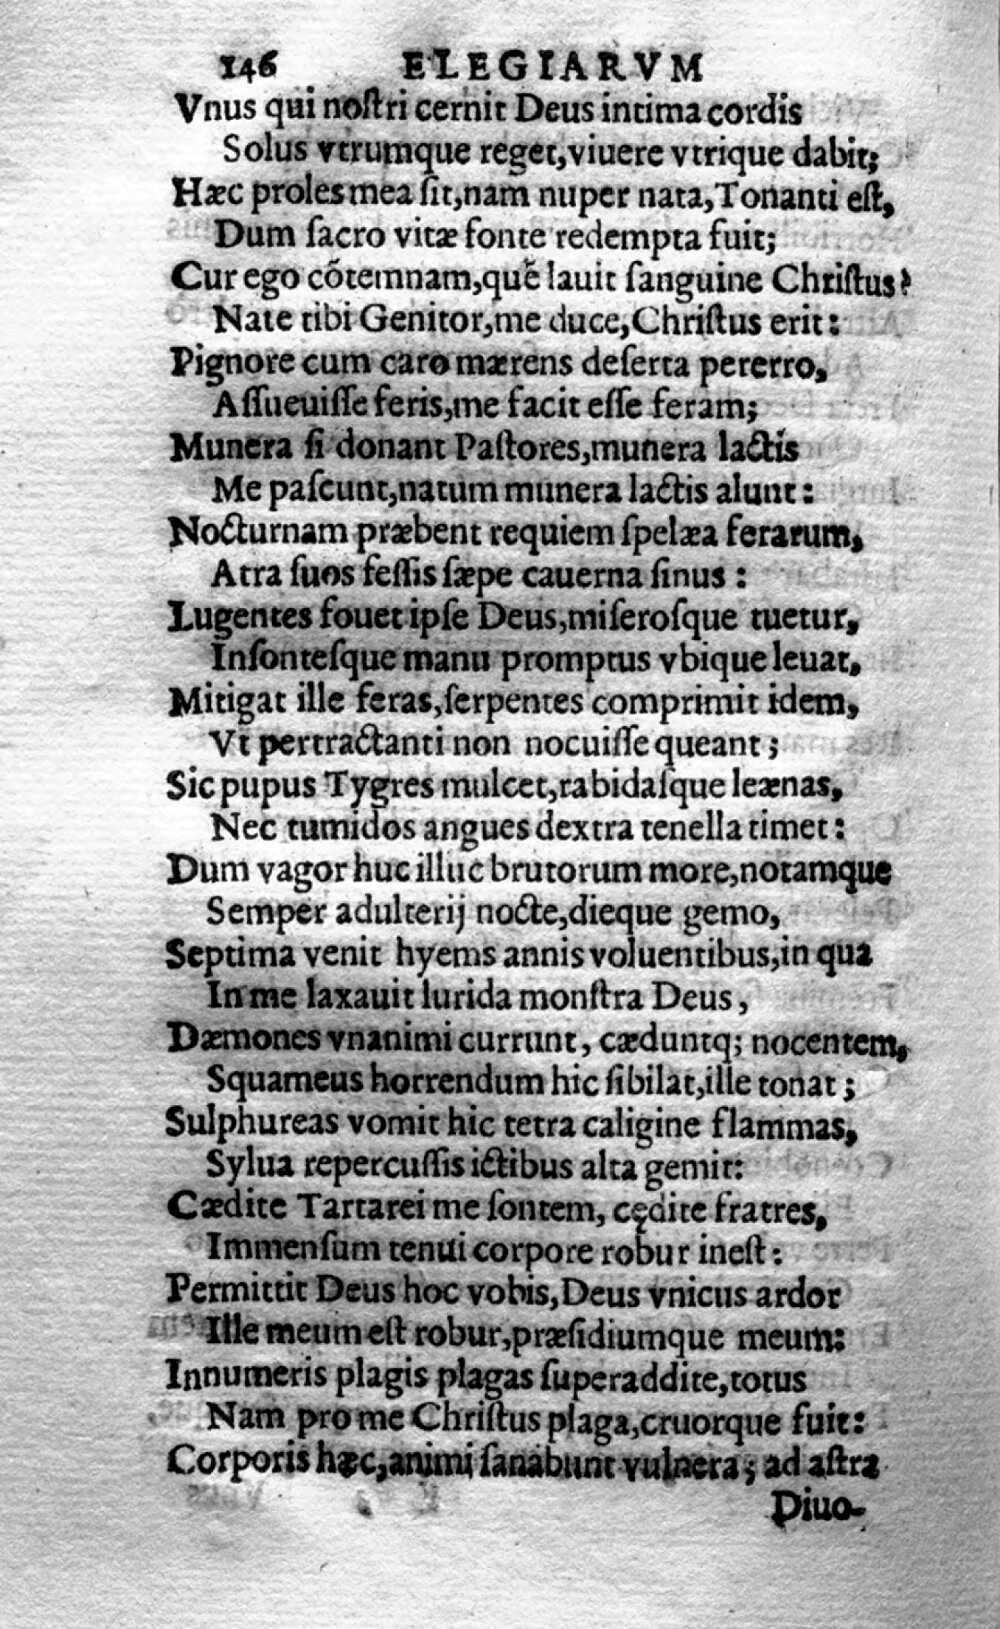 146 ELEGIARVM
Vnus qui noſtri cernit Deus intima cordis
Solus vtrumque reget,viuere vtrique dabit;
Hæc proles mea ſit,nam nuper nata,Tonanti eſt,
Dum ſacro vitæ fonte redempta fuit;
Cur ego cõtemnam,quẽ lauit ſanguine Chriſtus?
Nate tibi Genitor,me duce,Chriſtus erit:
Pignore cum caro mærens deſerta pererro,
Aſſueuiſſe feris,me facit eſſe feram;
Munera ſi donant Paſtores,munera lactis
Me paſcunt,natum munera lactis alunt:
Nocturnam præbent requiem ſpelæa ferarum,
Atra ſuos feſſis ſæpe cauerna ſinus:
Lugentes fouet ipſe Deus,miſeroſque tuetur,
Inſonteſque manu promptus vbique leuat,
Mitigat ille feras,ſerpentes comprimit idem,
Vt pertractanti non nocuiſſe queant;
Sic pupus Tygres mulcet,rabidaſque leænas,
Nec tumidos angues dextra tenella timet:
Dum vagor huc illuc brutorum more,notamque
Semper adulterij nocte,dieque gemo,
Septima venit hyems annis voluentibus,in qua
In me laxauit lurida monſtra Deus,
Dæmones vnanimi currunt, cæduntq; nocentem,
Squameus horrendum hic ſibilat,ille tonat;
Sulphureas vomit hic tetra caligine flammas,
Sylua repercuſſis ictibus alta gemit:
Cædite Tartarei me ſontem, cędite fratres,
Immenſum tenui corpore robur ineſt:
Permittit Deus hoc vobis,Deus vnicus ardor
Ille meum eſt robur,præſidiumque meum:
Innumeris plagis plagas ſuperaddite,totus
Nam pro me Chriſtus plaga,cruorque fuit:
Corporis hæc,animi ſanabunt vulnera; ad aſtra
Diuo-